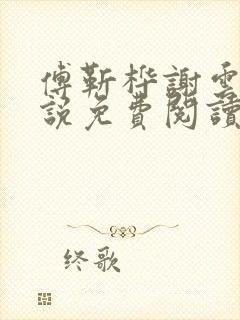 傅靳桦謝雲
説免費閱讀
终歌